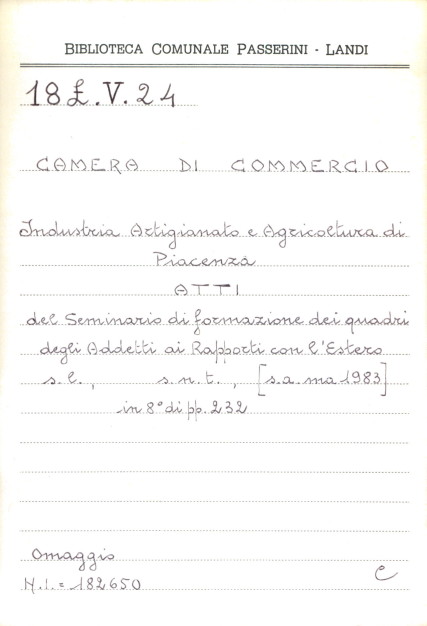 BIBLIOTECA COMUNALE PASSERINI - LANDI
18 £. V. 24
CAMERA DI COMMERCIO
Industria Artigianato e Agricoltura di
Piacenza
ATTI
del Seminario di formazione dei quadri
degli Addetti ai Rapporti con l'Estero
s. l. , s. n. t. , [s. a. ma 1983]
in 8° di pp. 232
Omaggio
N. I. = 182650
C